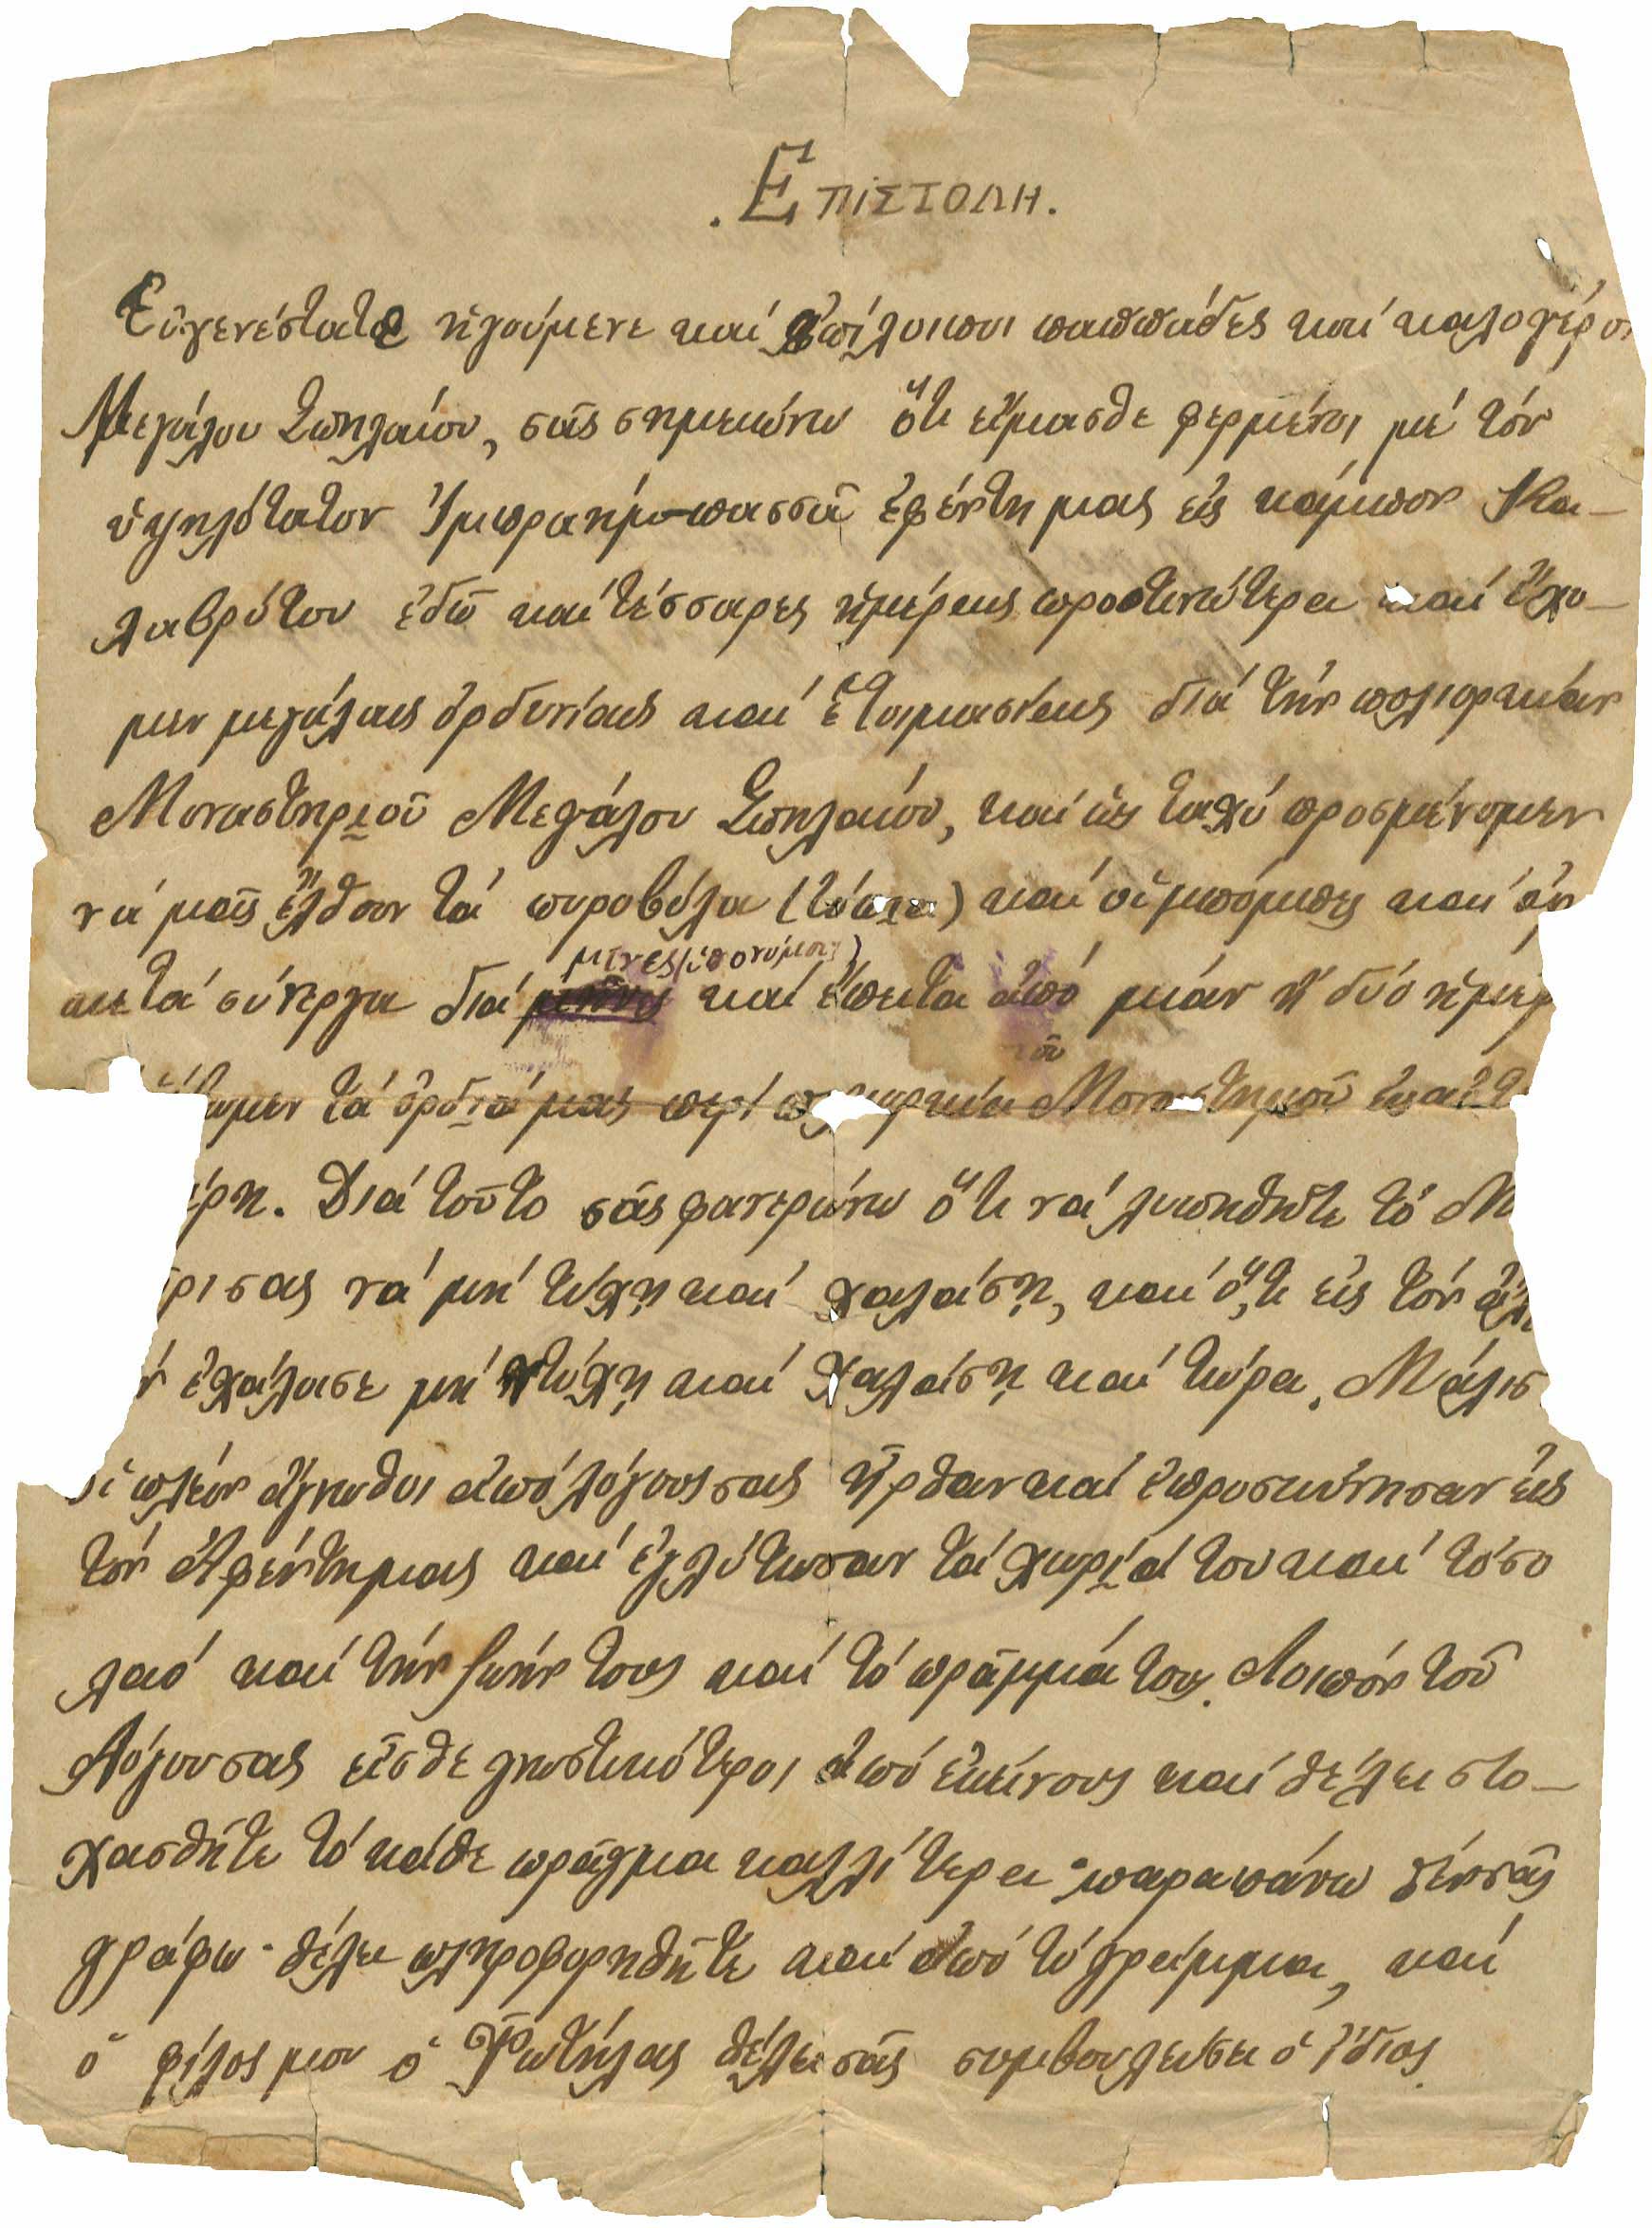 .ΕΠΙΣΤΟΛΗ.
Εὐγενέστατε ἡγούμενε καί ἐπίλοιποι παππάδες καί καλογέροι
Μεγάλου Σπηλαίου, σᾶς σημειώνω ὅτι εἴμασθε φερμένοι μέ τόν
ὑψηλότατον Ἰμπραήμ-πασσᾶ ἐφέντη μας εἰς κάμπον Κα-
λαβρύτου ἐδῶ καί τέσσαρες ἡμέραις προστινώτερα καί ἔχο-
μεν μεγάλαις ὀρδινίαις καί ἑτοιμασίαις διά τήν πολιορκίαν
Μοναστηριοῦ Μεγάλου Σπηλαίου, καί ὡς ταχύ προσμένομεν
νά μᾶς ἔλθουν τά πυροβόλα (τόπια) καί οἱ μπόμπες καί
καί τά σύνεργα διά μῖνες (ὑπονόμους) καί ἔπειτα ἀπό μιάν ἤ δύο ἡμέρ
τά ὀρδιά μας περί Μοναστηριοῦ
έρη. Διά τοῦτο σᾶς φανερώνω ὅτι νά λυπηθῆτε τό Μ
ρι σας νά μή τύχῃ καί χαλάσῃ, καί ὅ,τι εἰς τόν ἄλ
ν ἐχάλασε μή τύχῃ καί χαλάσῃ καί τώρα. Μάλισ
οἱ πλέον ἄγνωθοι ἀπό λόγους σας ἦρθαν καί ἐπροσκύνησαν εἰς
τόν ἀφέντη μας καί ἐγλύτωσαν τά χωριά του καί τόσο
λαό καί τήν ζωήν τους καί τό πρᾶμμά τους. Λοιπόν τοῦ
Λόγου σας εἶσθε γνωστικότεροι ἀπό ἐκείνους καί θέλει στο-
χασθῆτε τό κάθε πρᾶγμα καλλίτερα· παραπάνω δέν σᾶς
γράφω· θέλει πληροφορηθῆτε καί ἀπό τό γράμμα, καί
ὁ φίλος μου ὁ Φωτήλας θέλει σᾶς συμβουλεύσει ὁ ἴδιος.